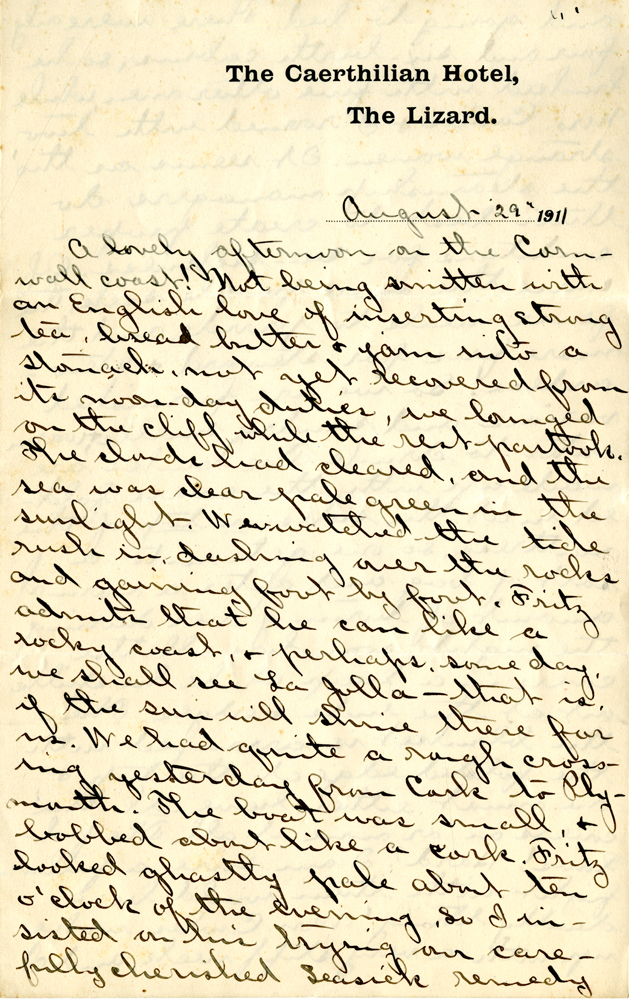 The Caerthilian Hotel,
The Lizard.
August 29" 1911
A lovely afternoon on the Corn-
wall coast! Not being smitten with
an English love of inserting strong
tea, bread butter & jam into a
stomach, not yet recovered from
its noon-day duties, we lounged
on the cliff while the rest partook.
The clouds had cleared, and the
sea was clear pale green in the
sunlight. We watched the tide
rush in, dashing over the rocks
and gaining foot by foot. Fritz
admits that he can like a
rocky coast, & perhaps, some day,
we shall see La Jolla – that is,
if the sun will shine there for
us. We had quite a rough cross-
ing yesterday from Cork to Ply-
mouth. The boat was small, &
bobbed about like a cork. Fritz
looked ghastly pale about ten
o'clock of the evening, so I in-
sisted on his trying our care-
fully cherished seasick remedy